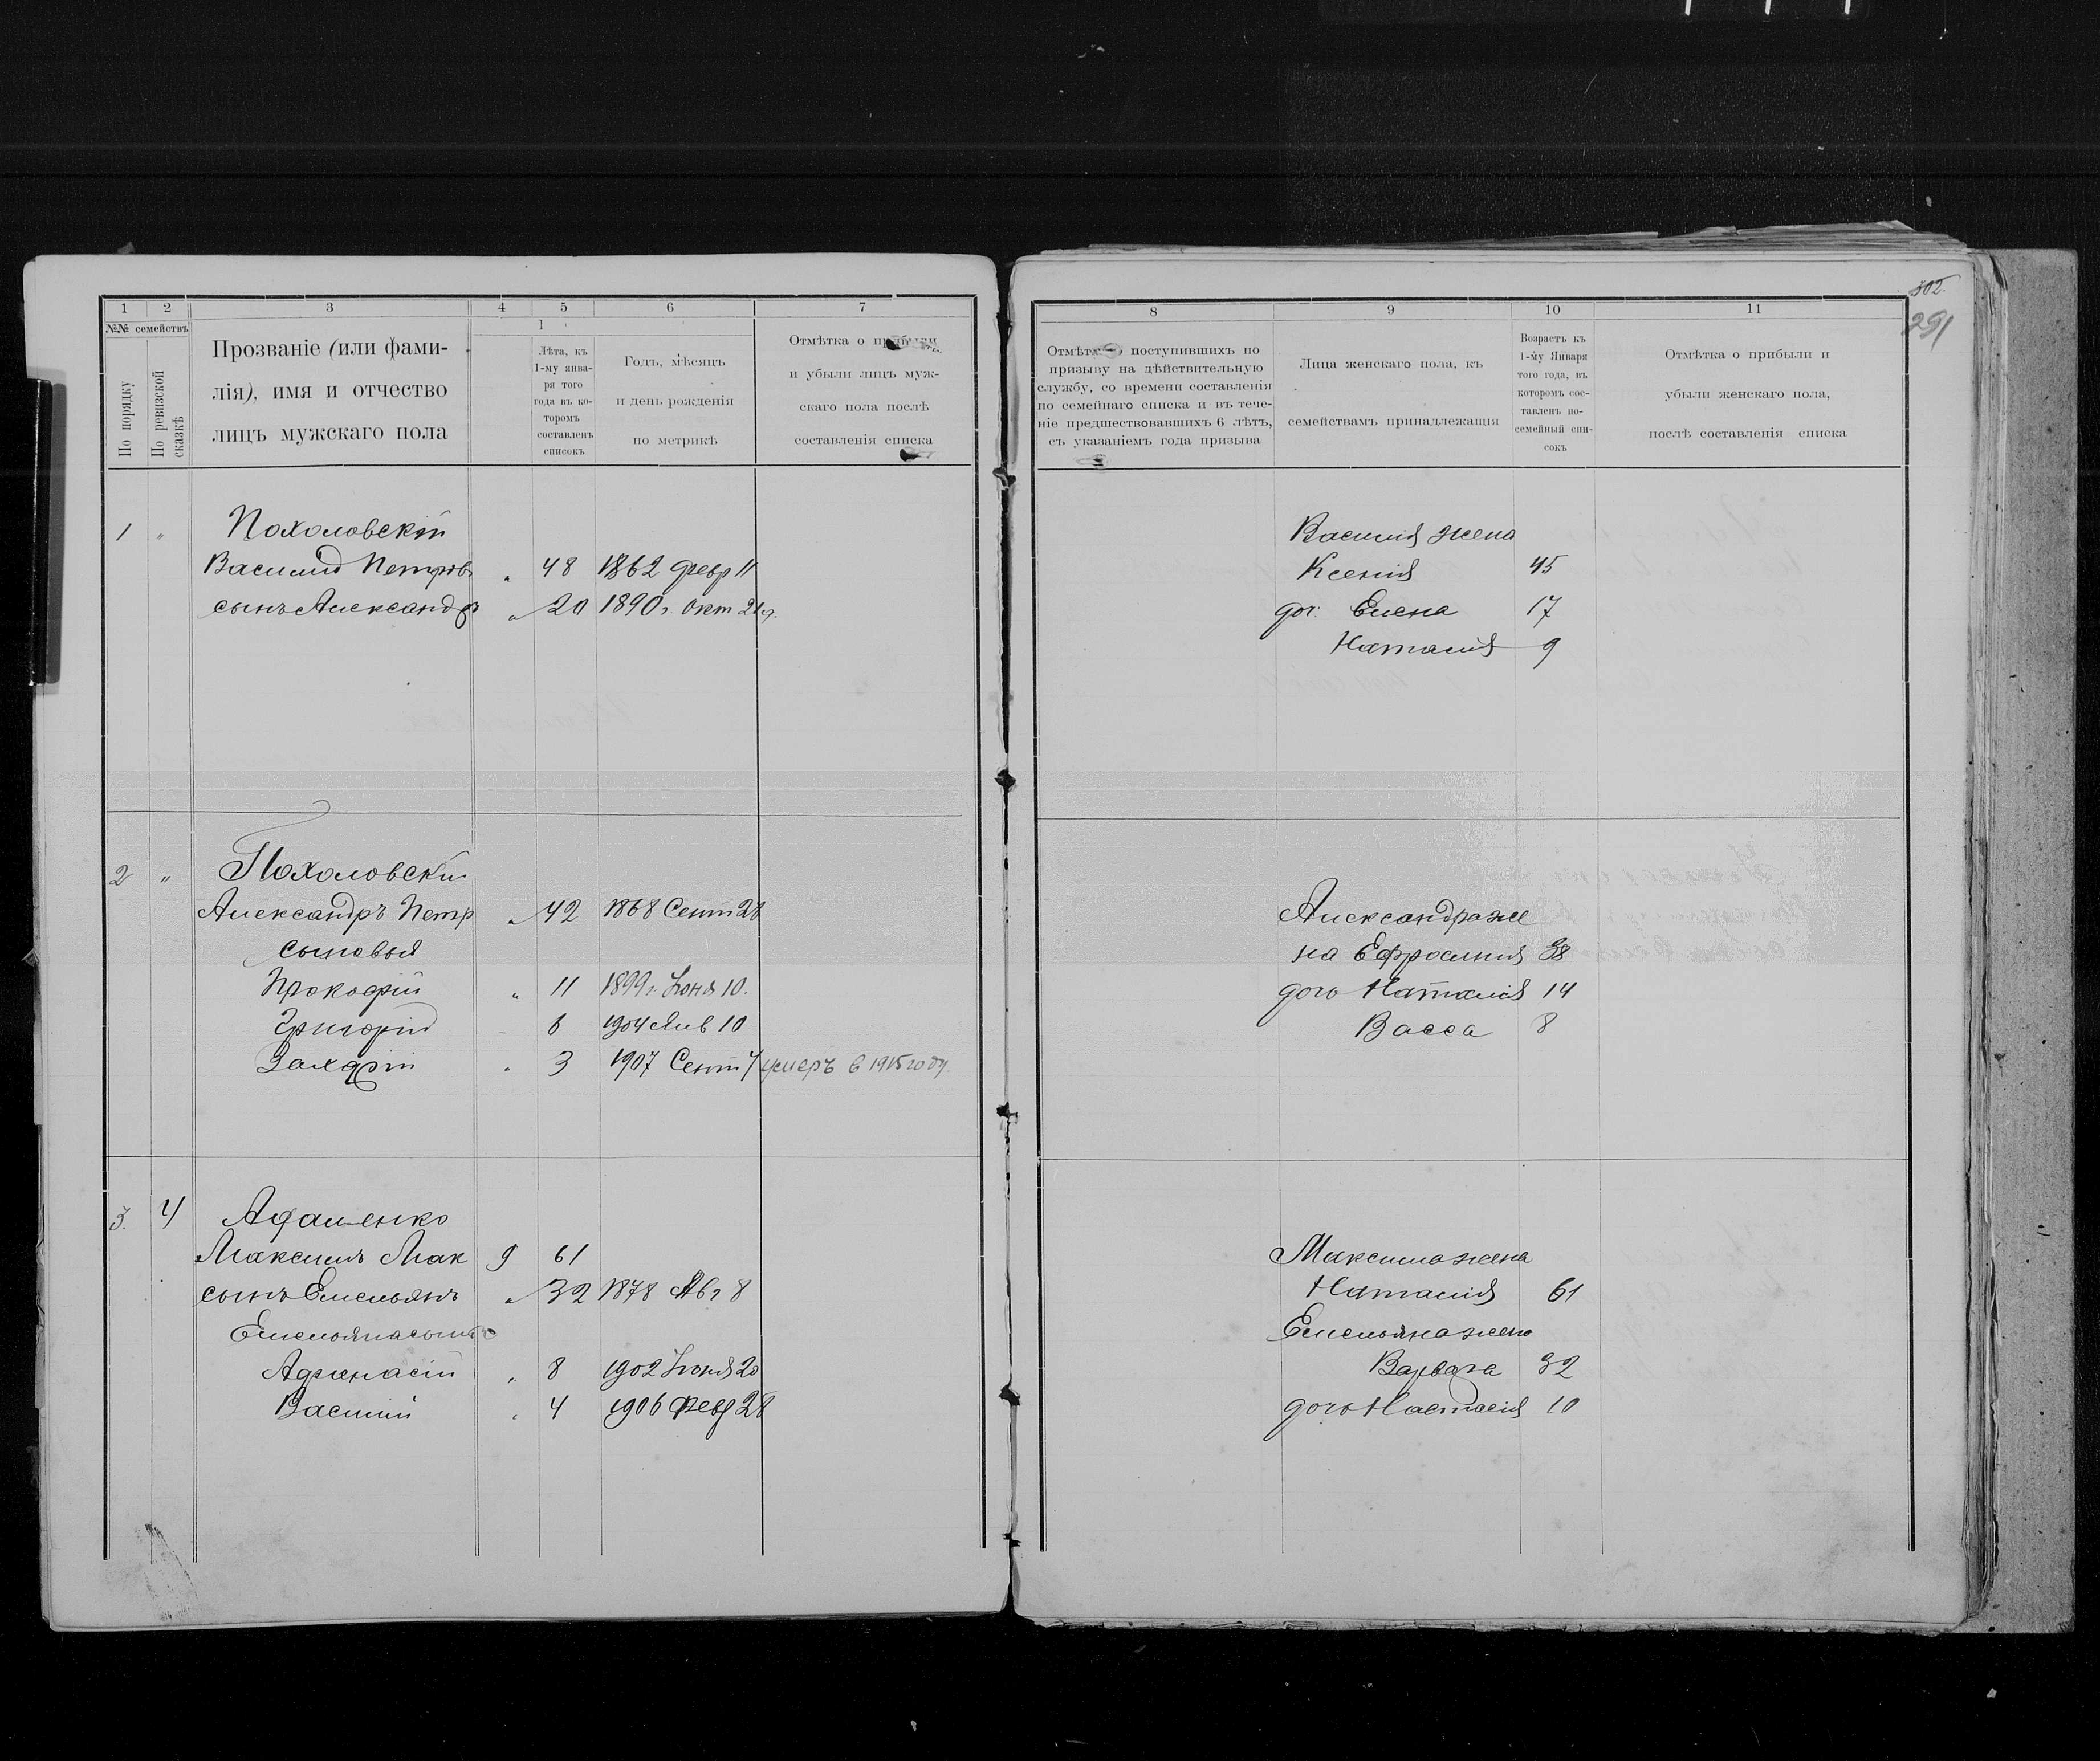 1 2 3 4 5 6 7
№№ семействъ
По порядку
По ревизской сказкѣ
Прозваніе (или фами-
лія), имя и отчество
лицъ мужскаго пола
1
Лѣта, къ
1-му янва-
ря того
года въ ко-
торомъ
составленъ
списокъ
Годъ, мѣсяцъ
и день рожденія
по метрикѣ
Отмѣтка о прибыли
и убыли лицъ муж-
скаго пола послѣ
составленія списка
1 " Похоловскій
Василій Петровъ " 48 1862 февр 11
сынъ Александръ " 20 1890 г. окт
2 " Похоловскій
Александръ Петр " 42 1868 Сент 28
сыновья
Прокофій " 11 1899 г. Іюня 10.
Григорій 6 1904 Янв 10
Захарій " 3 1907 Сент 4 умеръ в 1915 году
3. 4
Максимъ Мак 9 61
сынъ Емельянъ " 32 1878 Авг 8
Емельяна сыновья
Афанасій " 8 1902 Іюня 20
Василій " 4 1906 Февр 28
302.
291
8 9 10 11
Отмѣтка о поступившихъ по
призыву на дѣйствительную
службу, со времени составленія
по семейнаго списка и въ тече-
ніе предшествовавшихъ 6 лѣтъ,
съ указаніемъ года призыва
Лица женскаго пола, къ
семействамъ принадлежащія
Возрастъ къ
1-му Января
того года, въ
которомъ сос-
тавленъ по-
семейный спи-
сокъ
Отмѣтка о прибыли и
убыли женскаго пола,
послѣ составленія списка
Василія жена
Ксенія 45
доч: Елена 17
Наталія 9
Александра же
на Ефросинія 38
дочь Наталія 14
Васса 8
Максима жена
Наталія 61
Емельяна жена
Варвара 32
дочь Настасія 10